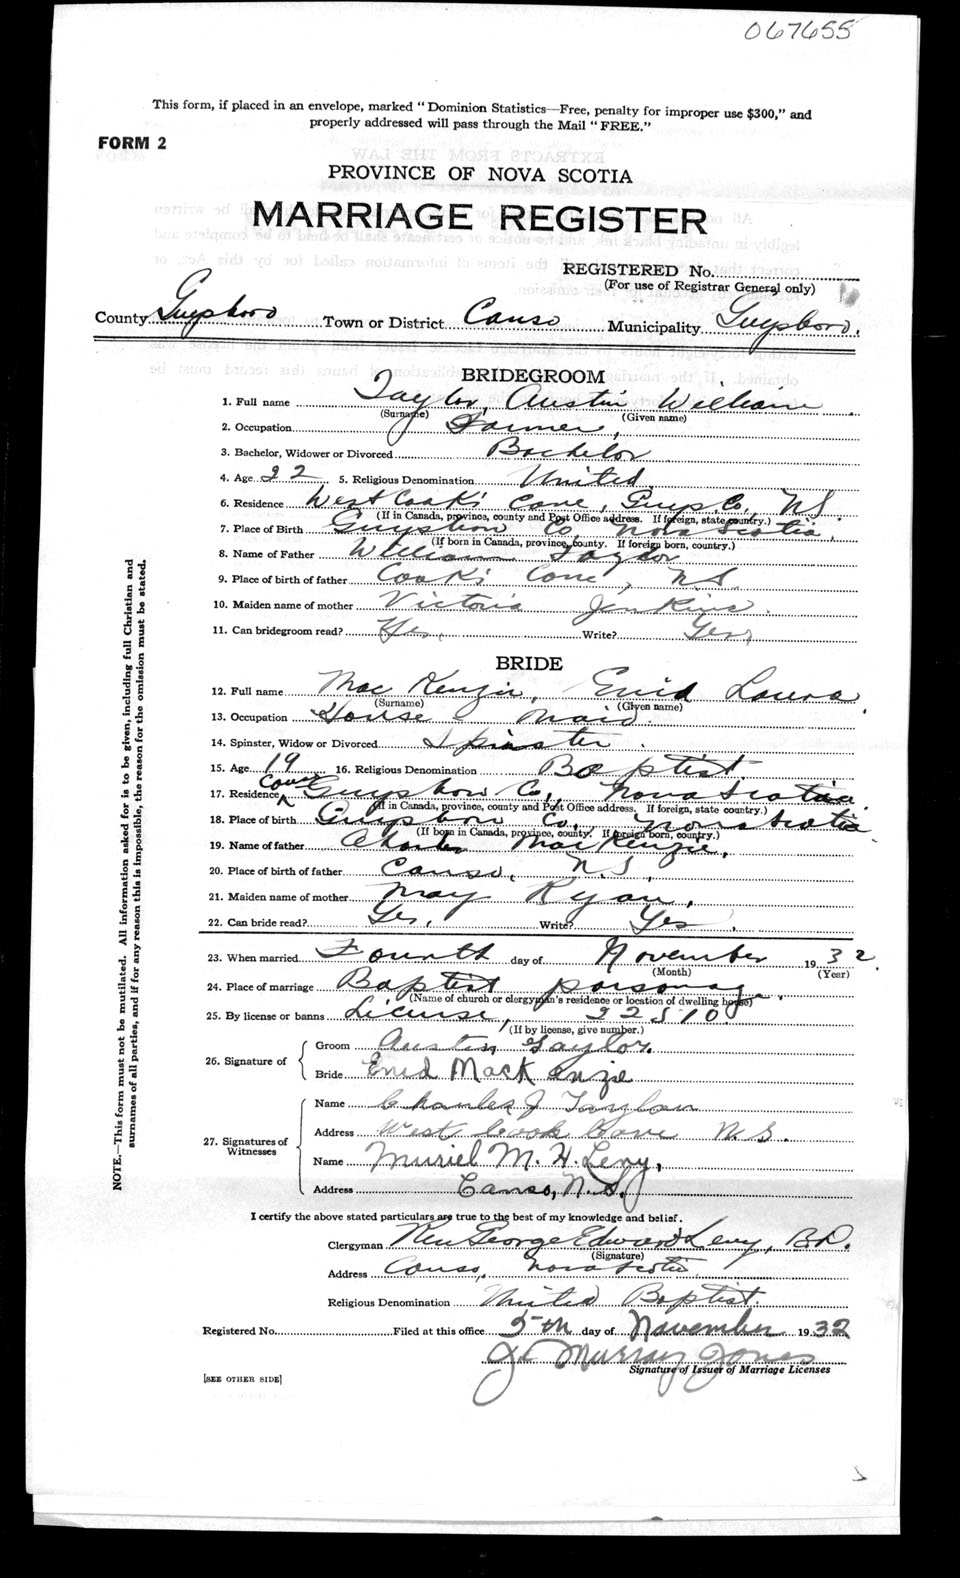 067655
This form, if placed in an envelope, marked "Dominion Statistics—Free, penalty for improper use $300," and
properly addressed will pass through the Mail "FREE."
FORM 2
PROVINCE OF NOVA SCOTIA
MARRIAGE REGISTER
REGISTERED No.
(For use of Registrar General only)
County Guysboro Town or District Canso Municipality Guysboro,
BRIDEGROOM
1. Full name Taylor, Austin William
(Surname) (Given name)
2. Occupation Farmer,
3. Bachelor, Widower or Divorced Bachelor
4. Age 22 5. Religious Denomination United
6. Residence West Cook's Cove, Guys. Co, N.S.
(If in Canada, province, county and Post Office address. If foreign, state country.)
7. Place of Birth Guysboro Co Nova Scotia,
(If born in Canada, province, county. If foreign born, country.)
8. Name of Father William Taylor
9. Place of birth of father Cook's Cove, N.S.
10. Maiden name of mother Victoria Jenkins.
11. Can bridegroom read? Yes, Write? Yes,
BRIDE
12. Full name MacKenzie, Enid Laura
(Surname) (Given name)
13. Occupation House Maid.
14. Spinster, Widow or Divorced Spinster.
15. Age 19 16. Religious Denomination Baptist.
17. Residence Canso Guysboro Co, Nova Scotia.
(If in Canada, province, county and Post Office address. If foreign, state country.)
18. Place of birth Guysboro Co, Nova Scotia
(If born in Canada, province, county. If foreign born, country.)
19. Name of father Charles MacKenzie,
20. Place of birth of father Canso, N.S.,
21. Maiden name of mother May Ryan,
22. Can bride read? Yes, Write? Yes.
23. When married Fourth day of November 1932.
(Month) (Year)
24. Place of marriage Baptist parsonage.
(Name of church or clergyman's residence or location of dwelling house)
25. By license or banns License, 22510.
(If by license, give number.)
26. Signature of
Groom Austin Taylor.
Bride Enid MacKenzie
27. Signatures of Witnesses
Name Charles J Taylor
Address West Cook Cove N.S.
Name Muriel M. H. Levy,
Address Canso, N.S.
I certify the above stated particulars are true to the best of my knowledge and belief.
Clergyman Rev George Edward Levy, B.D.
(Signature)
Address Canso, Nova Scotia
Religious Denomination United Baptist.
Registered No. Filed at this office 5th day of November 1932
J. Murray Jones
Signature of Issuer of Marriage Licenses
[SEE OTHER SIDE]
NOTE.—This form must not be mutilated. All information asked for is to be given, including full Christian and
surnames of all parties, and if for any reason this is impossible, the reason for the omission must be stated.